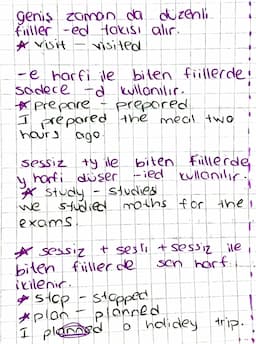 geniş zaman da düzenli
fiiller -ed takısı alır.
* visit - visited
-e harfi ile biten fiillerde
sadece -d kullanılır.
* prepare - prepared
I prepared the meal two
hours ago.
sessiz +y ile biten fiillerde
y harfi düşer -ied kullanılır.
* study - studies
we studied maths for the
exams.
* sessiz + sesli + sessiz ile
biten fiillerde son harf
ikilenir.
* stop - stopped
* plan - planned
I planned a holidey trip.